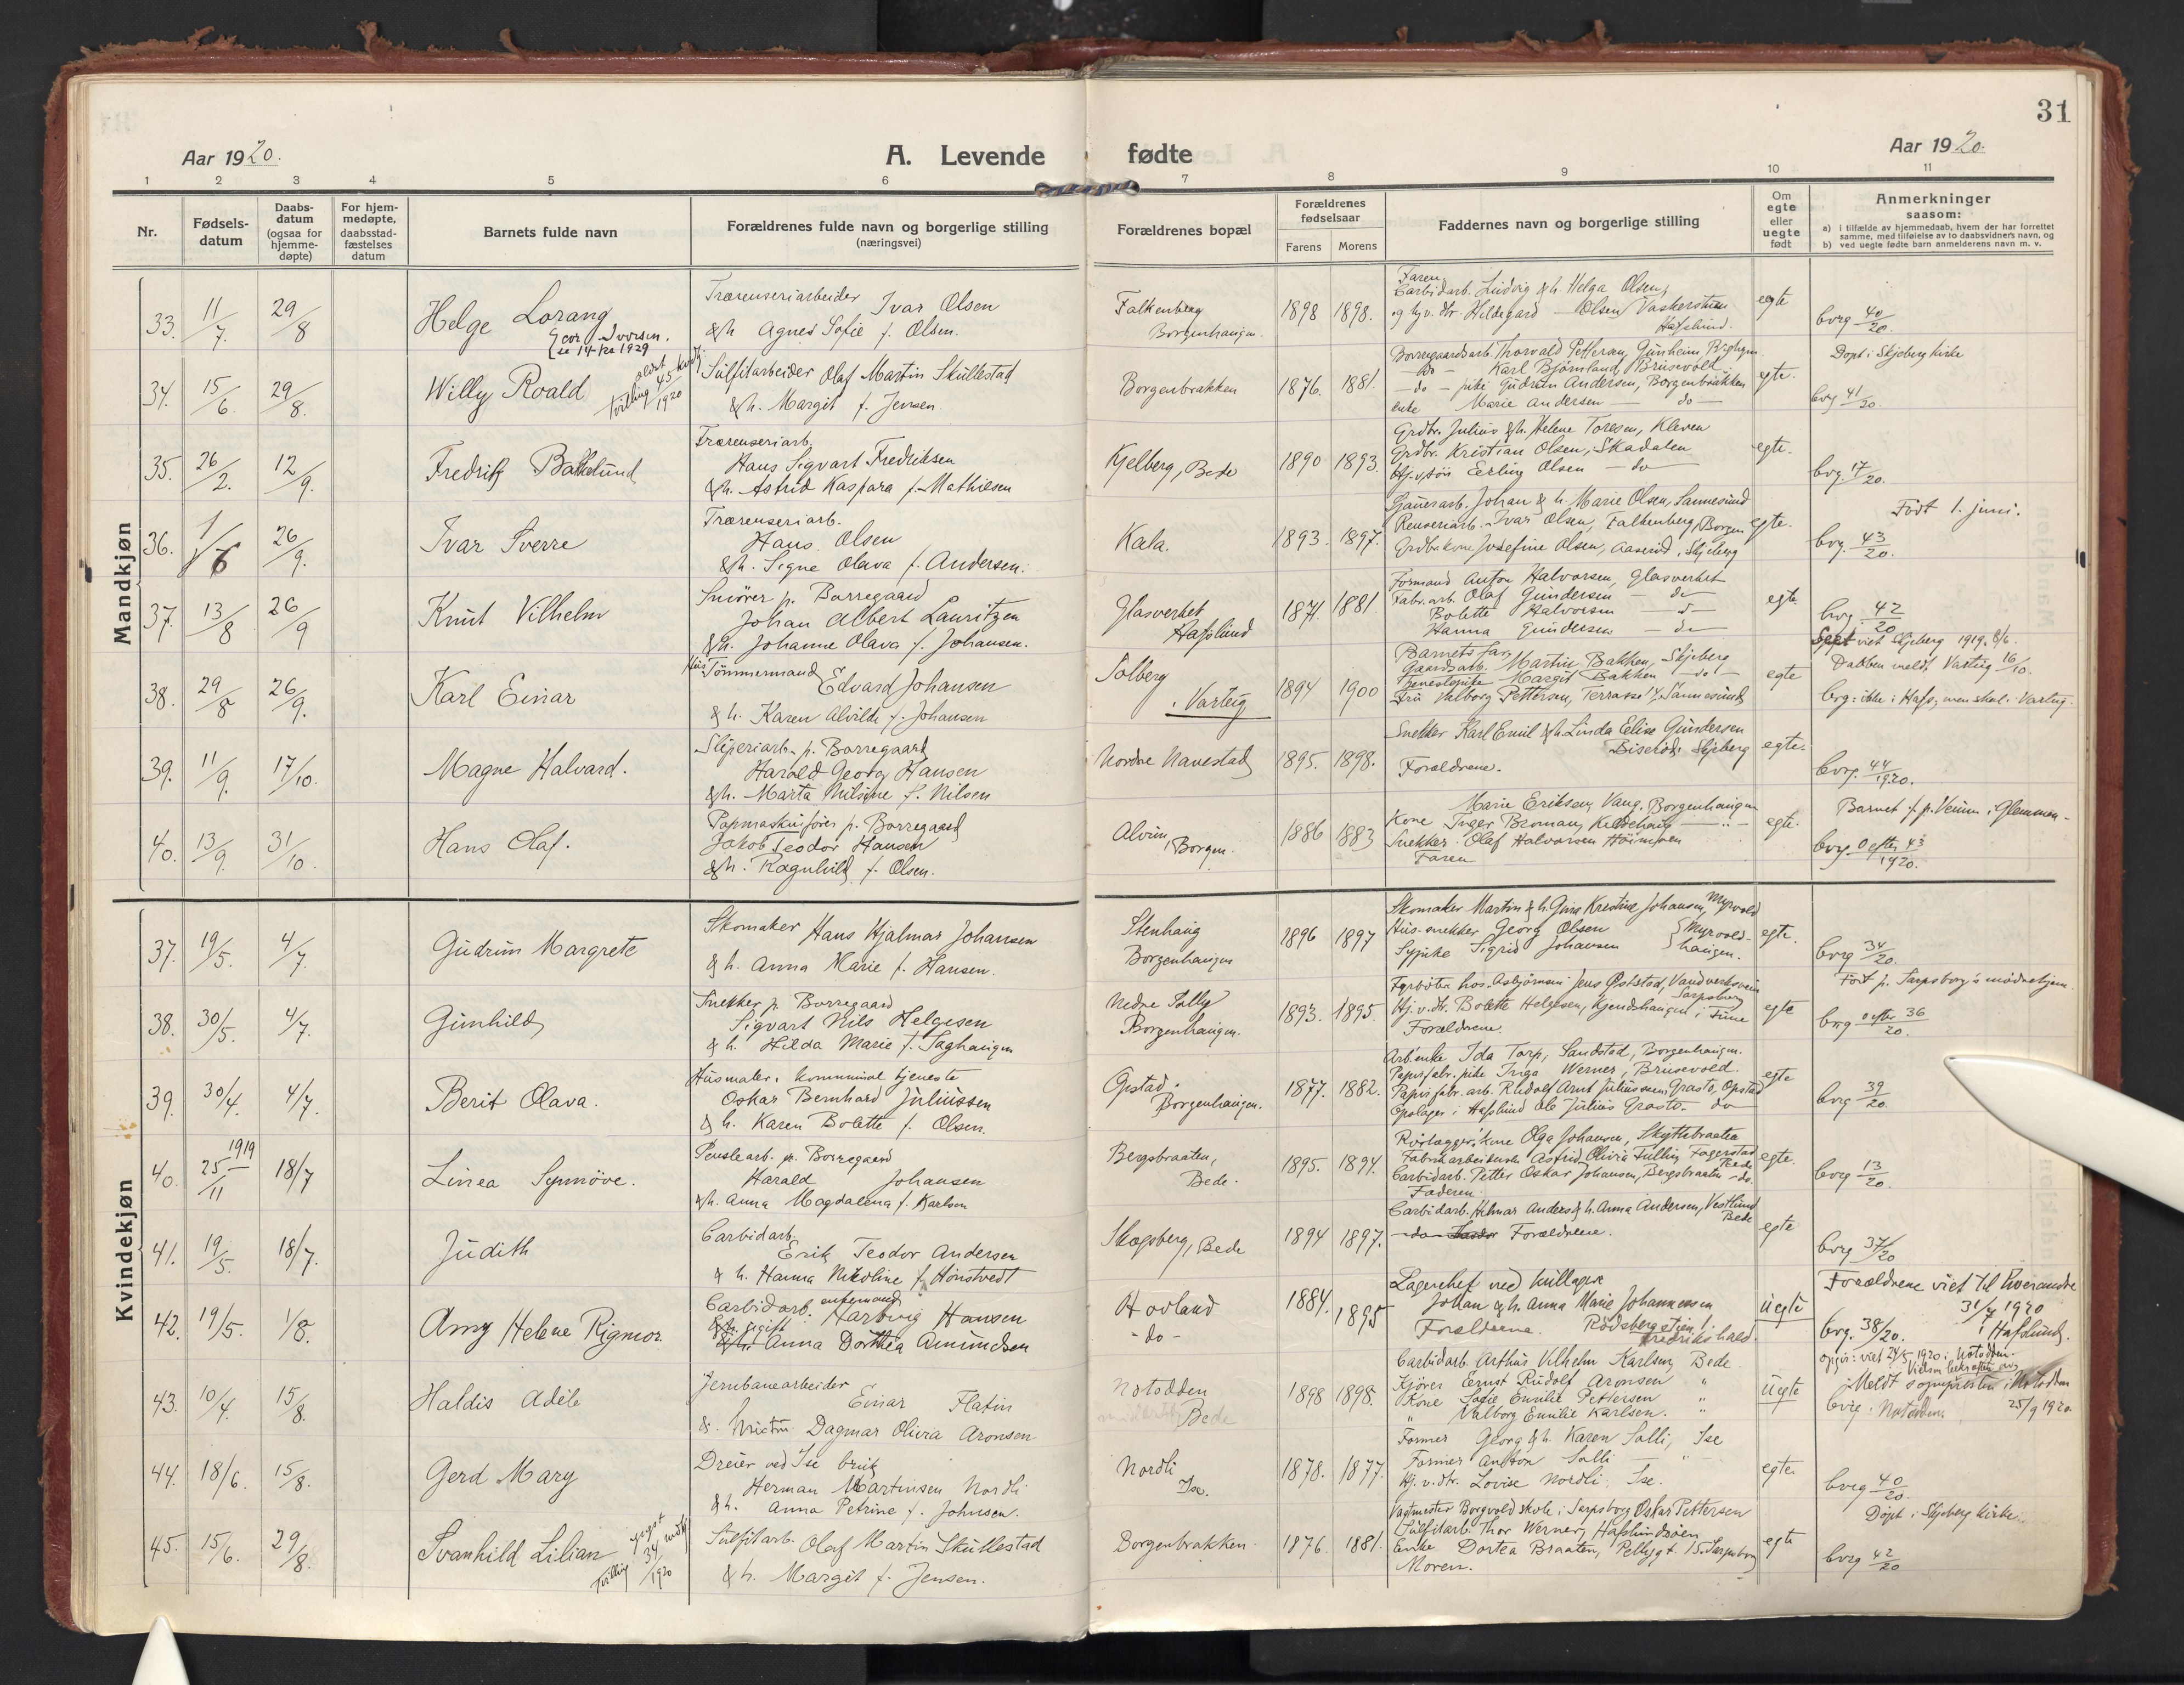 31
Aar 1920.
A. Levende fødte
Aar 1920.
1 2 3 4 5 6 7 8 9 10 11
Nr.
Fødsels-
datum
Daabs-
datum
(ogsaa for
hjemme-
døpte)
For hjem-
medøpte,
daabsstad-
fæstelses
datum
Barnets fulde navn
Forældrenes fulde navn og borgerlige stilling
(næringsvei)
Forældrenes bopæl
Forældrenes
fødselsaar
Farens Morens
Faddernes navn og borgerlige stilling
Om
egte
eller
uegte
født
Anmerkninger
saasom:
a) i tilfælde av hjemmedaab, hvem der har forrettet
samme, med tilføielse av to daabsvidners navn, og
b) ved uegte fødte barn anmelderens navn m. v.
Mandkjøn
33. 11/7. 29/8 Helge Lorang
Trærenseriarbeider Ivar Olsen
& h Agnes Sofie f. Olsen.
Falkenberg
Borgenhaugen.
1898 1898.
Faren
Carbidarb. Ludvig & h Helga Olsen,
og hjv. dtr. Hildegard — Olsen
Hafslund.
egte
bvrg 40/20.
34. 15/6. 29/8. Willy Roald
Tvilling 45 kvkj 1920
Sulfitarbeider Olaf Martin Skullestad
& h. Margit f. Jensen.
Borgenbrakken
1876. 1881.
Borregaardsarb. Thorvald Pettersen,
— do — Karl Bjørnland, Brusevold
— do — pike Gudrun Andersen, Borgenbrakken
enke Marie Andersen — do —
egte.
Døpt i Skjeberg kirke
bvrg 41/20.
35. 26/2. 12/9. Fredrik Bakkelund
Trærenseriarb.
Hans Sigvart Fredriksen
& h. Astrid Kaspara f. Mathiesen
Kjelberg, Bede
1890 1893.
Grdbr. Julius & h. Helene Toresen, Kleven
Grdbr. Kristian Olsen, Skadalen
Hj.v. søn Erling Olsen — do —
egte.
bvrg. 17/20.
36. 1/6 26/9. Ivar Sverre
Trærenseriarb.
Hans Olsen
& h. Signe Olava f. Andersen.
Kala.
1893. 1897.
Johan & h. Marie Olsen, Sannesund
Renseriarb. Ivar Olsen, Falkenberg, Borgen
Grdbr.kone Josefine Olsen, Skjeberg
egte.
Født 1. juni.
bvrg. 43/20.
37. 13/8 26/9 Knut Vilhelm
Smører p. Borregaard
Johan Albert Lauritzen
& h. Johanne Olava f. Johansen.
Glasverket
Hafslund
1871. 1881.
Formand Anton Halvorsen, Glasverket
Fabr.arb. Olaf Gundersen — do —
Bolette Halvorsen — d —
Hanna Gundersen — do —
egte.
bvrg. 42/20
38. 29/8 26/9. Karl Einar
Hus Tømmermand
Edvard Johansen
& h. Karen Alvilde f. Johansen
Solberg
i Varteig
1894 1900
Barnets far,
Gaardsarb. Martin Bakken, Skjeberg
Tjenestepike Margit Bakken — do —
Fru Valborg Pettersen, Terrasse 14, Sannesund
egte
viet Skjeberg 1919. 8/6.
Daaben meldt Varteig 16/10.
bvrg: ikke i Hafs, men skal i Varteig.
39. 11/9. 17/10. Magne Halvard.
Sliperiarb. p. Borregaard
Harald Georg Hansen
& h. Marta Nilsine f. Nilsen
Nordre Navestad
1895. 1898.
Snekker Karl Emil & h. Linda Elise Gundersen
Skjeberg
Forældrene.
egte.
bvrg. 44/1920.
40. 13/9. 31/10. Hans Olaf.
Papmaskinfører p. Borregaard
Jakob Teodor Hansen
& h. Ragnhild f. Olsen.
Alvim, Borgen.
1886 1883
Marie Eriksen, Vang, Borgenhaugen
Kone Inger Broman, Kildehaug — " —
Snekker Olaf Halvorsen
Faren
egte.
Barnet f. p. Venum i Glemmen.
bvrg. 0 efter 43/1920.
Kvindekjøn
37. 19/5. 4/7. Gudrun Margrete
Skomaker Hans Hjalmar Johansen
& h. Anna Marie f. Hansen.
Stenhaug
Borgenhaugen
1896 1897
Skomaker Martin & h. Gina Kristine Johansen, Myrvold
Hus-snekker Georg Olsen } Myrvold-
Sypike Sigrid Johansen } haugen.
egte.
bvrg 34/20.
38. 30/5. 4/7. Gunhild
Snekker p. Borregaard
Sigvart Nils Helgesen
& h. Hilda Marie f. Taghaugen
Nedre Solli
Borgenhaugen.
1893. 1895.
Fyrbøter hos Asbjørnsen Jens
Sarpsborg
Hj.v.dtr. Bolette Helgesen, i Tune
Forældrene.
egte
Født p. Sarpsborg's mødrehjem.
bvrg 0 efter 36/20.
39. 30/4. 4/7. Berit Olava.
Husmaler i kommunal tjeneste
Oskar Bernhard Juliussen
& h. Karen Bolette f. Olsen.
Opstad.
Borgenhaugen.
1877. 1882.
Arb.enke Ida Torp, Sandstad, Borgenhaugen.
Papirfabr. pike Inga Werner, Brusevold.
Papirfabr. arb. Rudolf Arnt Juliussen Graato, Opstad
Opslager i Hafslund Ole Julius Graato. — do
egte
bvrg 39/20.
40. 25/11 1919 18/7 Linea Synnöve.
Penslearb. p. Borregaard
Harald Johansen
& h. Anna Magdalena f. Karlsen
Bergsbraaten,
Bede.
1895. 1894.
Rørlægger kone Olga Johansen, Skyttebraaten
Fabrikarbeiderske Astrid Olivia Lilling Fagerstad
Bede
Carbidarb. Petter Oskar Johansen, Bergsbraaten — do.
Faderen.
egte.
bvrg 13/20.
41. 19/5. 18/7. Judith
Carbidarb.
Erik Teodor Andersen
& h. Hanna Nikoline f. Hønstvedt
Skogsberg, Bede
1894 1897.
Carbidarb. Helmar Anders & h. Anna Andersen, Vestlund
Bede
Forældrene.
egte
bvrg 37/20
42. 19/5. 1/8. Amy Helene Rigmor.
Carbidarb. enkemand Hartvig Hansen
& ugift Anna Dorthea Amundsen
Hovland
- do -
1884. 1895
Lagerchef ved
Johan & h. Anna Marie Johannessen
Rødsbergstien 1.
Forældrene. Fredrikshald.
uegte
Forældrene viet til hverandre
31/7 1920
i Hafslund.
bvrg. 38/20.
43. 10/4. 15/8. Haldis Adèle
Jernbanearbeider
Einar Flatin
& hustru Dagmar Olivia Aronsen
Notodden
Bede
1898 1898.
Carbidarb. Arthur Vilhelm Karlsen, Bede
Kjører Ernst Rudolf Aronsen "
Kone Sofie Emilie Pettersen "
" Valborg Emilie Karlsen. "
uegte
opgir: viet 24/5 1920 i Notodden.
Meldt sogneprästen i Notodden
25/9 1920.
bvrg: Notodden
44. 18/6. 15/8. Gerd Mary
Dreier ved Ise bruk
Herman Martinsen Nordli
& h. Anna Petrine f. Johnsen.
Nordli
Ise.
1878. 1877.
Former Georg & h. Karen Solli, Ise
Former Anton Solli — " —
Hj. v. dtr. Lovise Nordli. Ise.
egte.
bvrg 40/20.
45. 15/6. 29/8. Svanhild Lilian
Tvilling 34 mdkj 1920
Sulfitarb. Olaf Martin Skullestad
& h. Margit f. Jensen.
Borgenbrakken.
1876. 1881.
Vagtmester Borgvold skole i Sarpsborg Oskar Pettersen
Sulfitarb. Thor Werner, Hafslundsøen
Enke Dortea Braaten, Pellygt. 15. Sarpsborg
Moren.
egte
Døpt i Skjeberg kirke.
bvrg 42/20